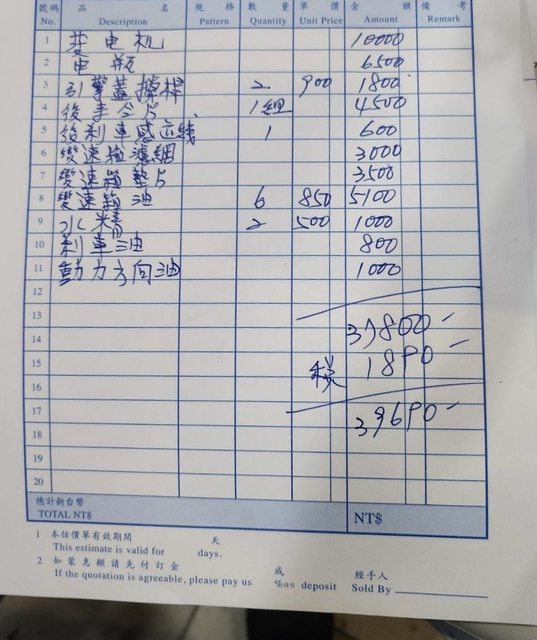 號碼 品名 規格 數量 單價 金額 備考
No. Description Pattern Quantity Unit Price Amount Remark
1 發电机 10000
2 电瓶 6500
3 引擎蓋撐桿 2 900 1800
4 後來令片 1組 4500
5 後刹車感应綫 1 600
6 變速箱濾網 3000
7 變速箱墊片 3500
8 變速箱油 6 850 5100
9 水精 2 500 1000
10 刹車油 800
11 動力方向油 1000
12
13 37800-
14
15 稅 1890-
16
17 39690-
18
19
20
總計新台幣
TOTAL NT$ NT$
1 本估價單有效期間 天
This estimate is valid for days.
2 如蒙惠顧請先付訂金 成 經手人
If the quotation is agreeable, please pay us %as deposit Sold By